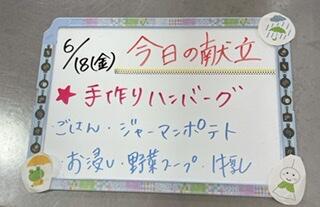 6/18(金) 今日の献立
★手作りハンバーグ
・ごはん・ジャーマンポテト
・お浸し・野菜スープ・牛乳